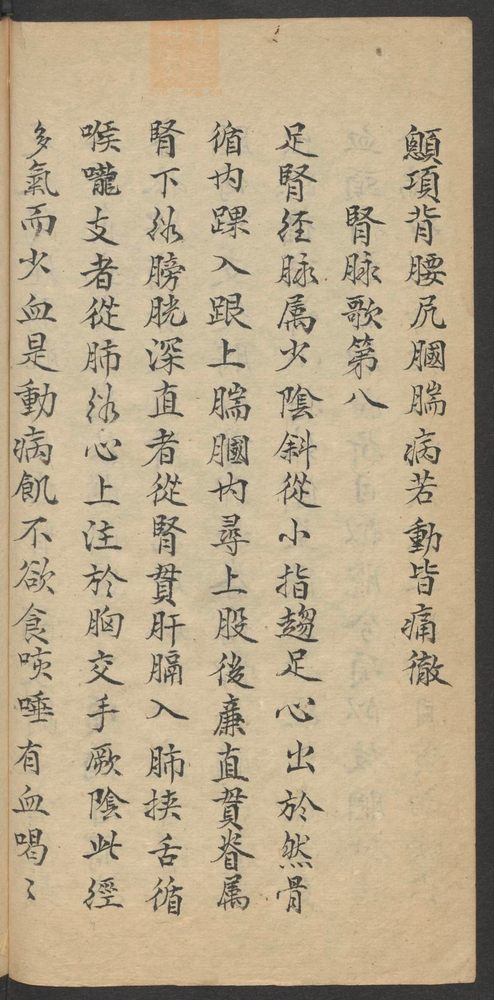 顖項背腰尻膕腨病若動皆痛徹
腎脉歌第八
足腎経脉属少陰斜從小指趨足心出於然骨
循内踝入跟上腨膕内尋上股後廉直貫脊属
腎下絡膀胱深直者從腎貫肝膈入肺挟舌循
喉嚨支者從肺絡心上注於胸交手厥陰此經
多氣而少血是動病飢不欲食咳唾有血喝〻